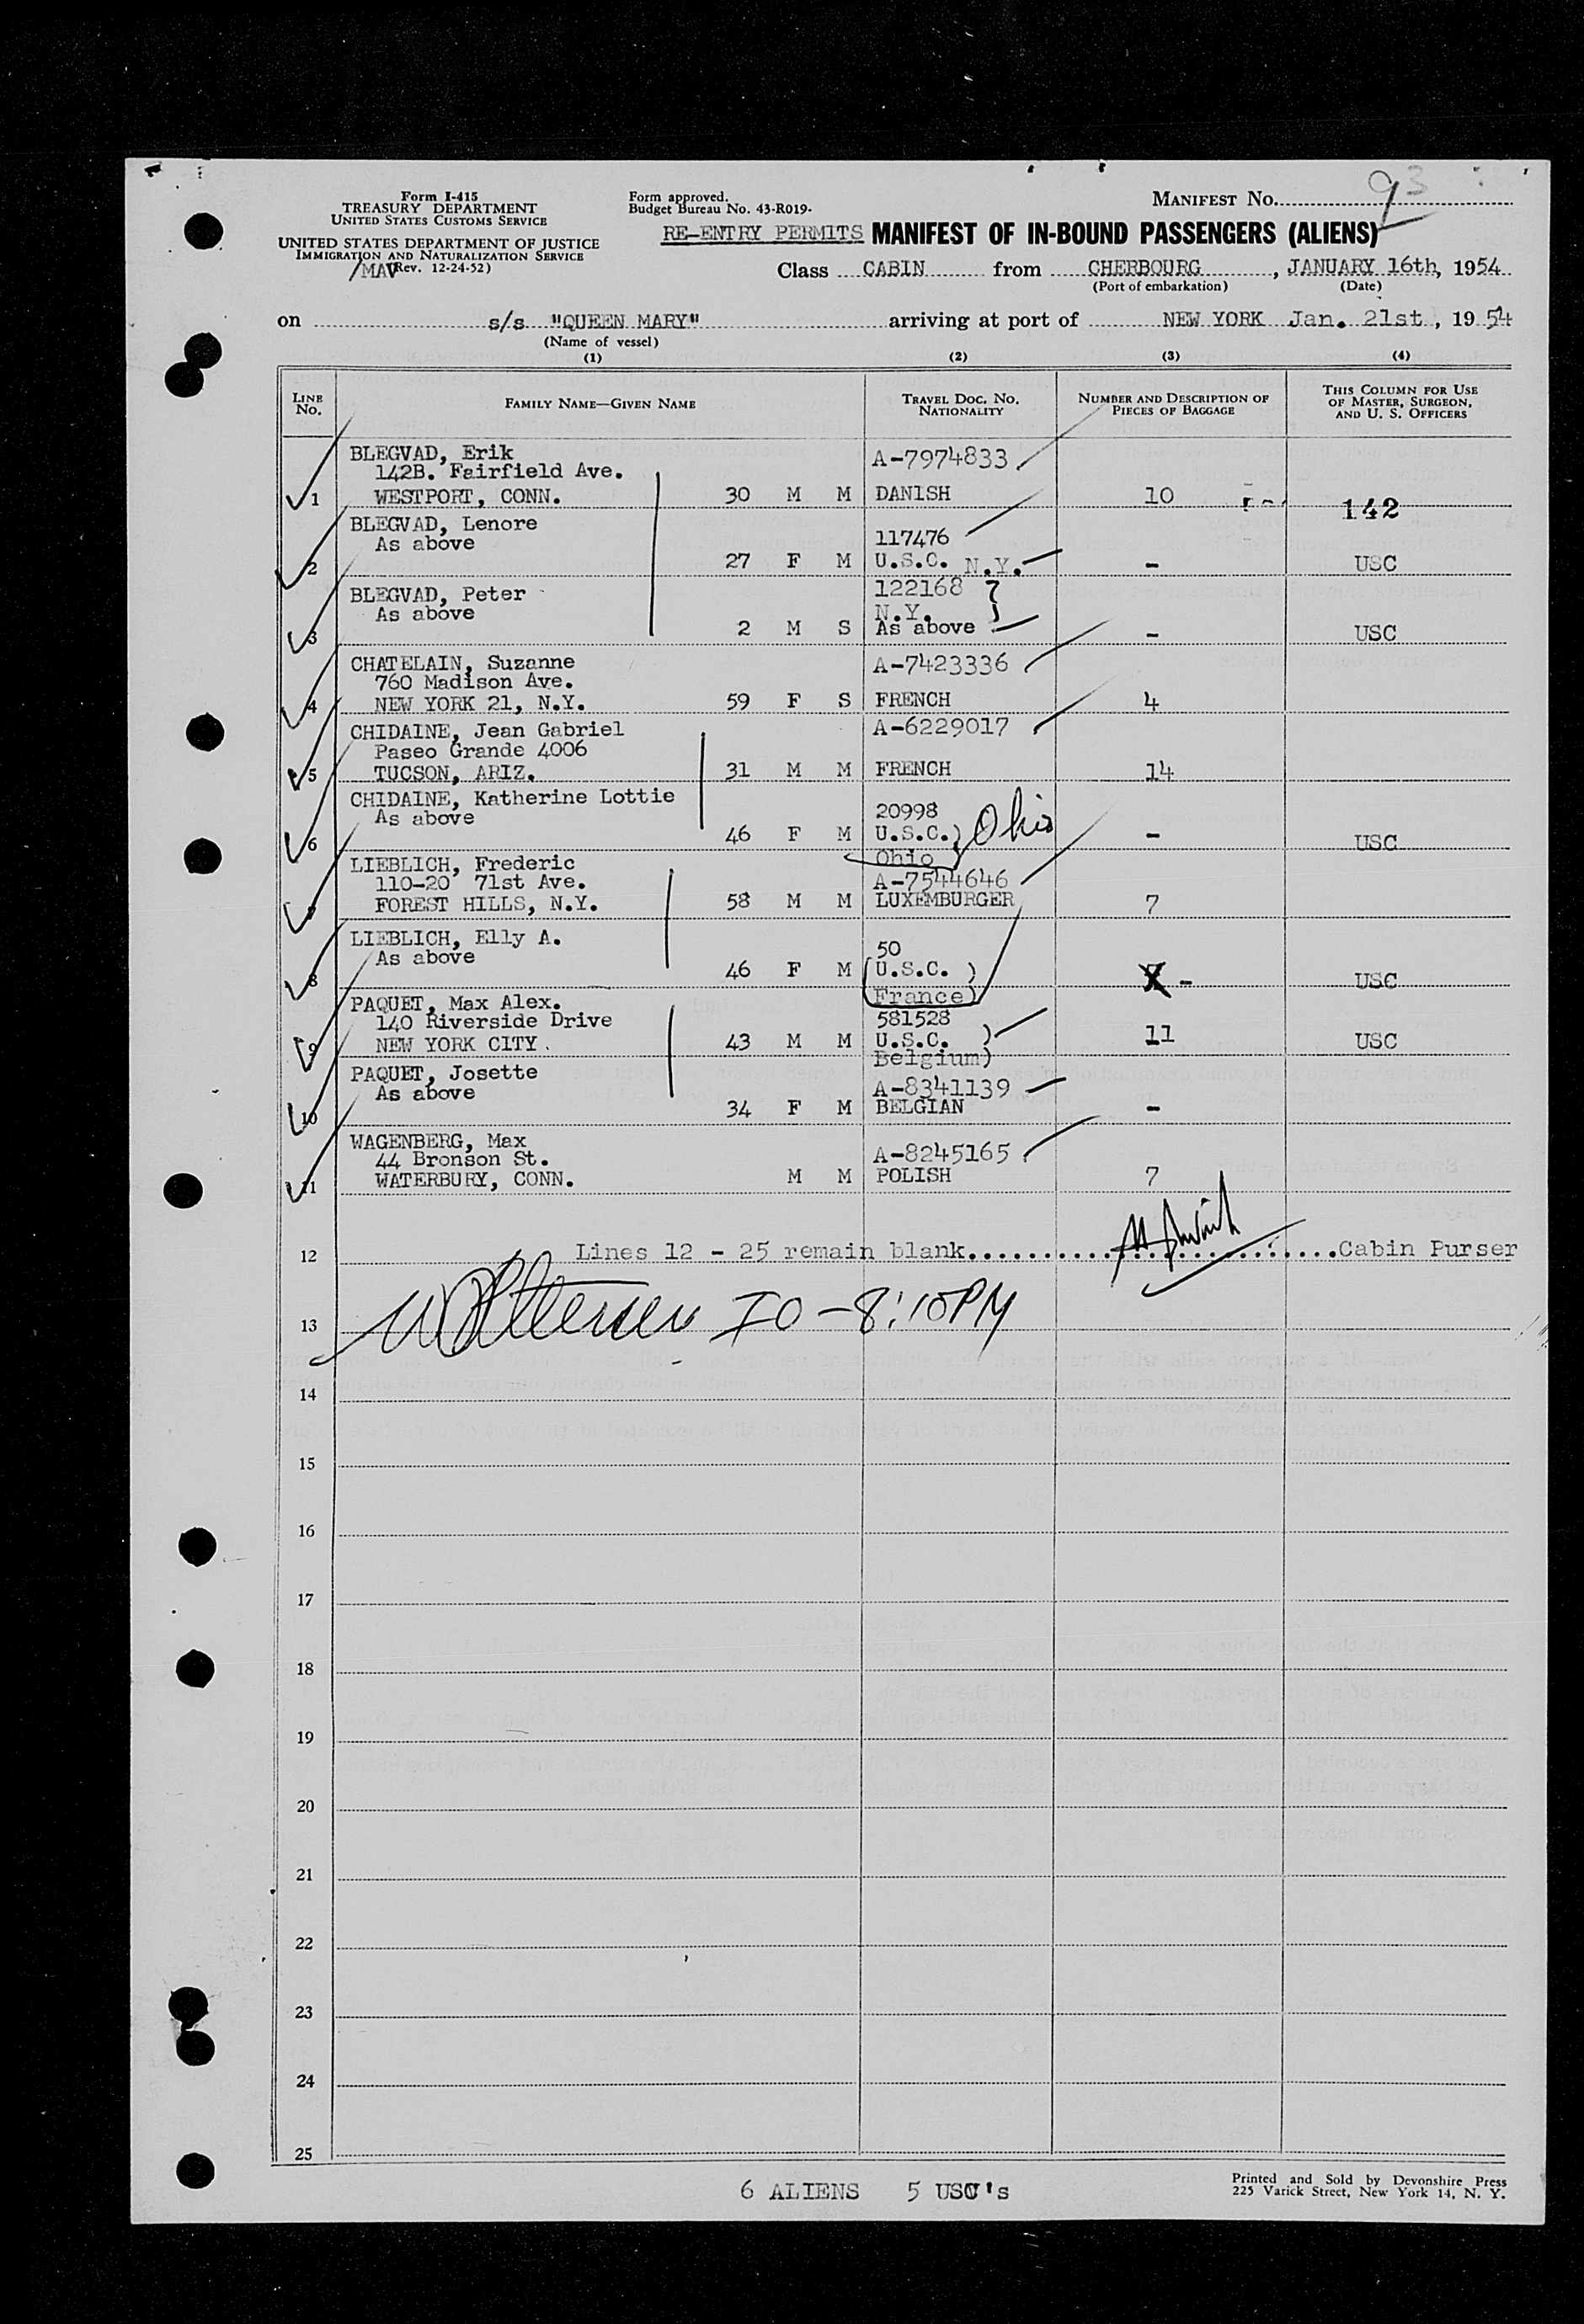 Form I-415
TREASURY DEPARTMENT
UNITED STATES CUSTOMS SERVICE
UNITED STATES DEPARTMENT OF JUSTICE
IMMIGRATION AND NATURALIZATION SERVICE
/MAV Rev. 12-24-52)
Form approved.
Budget Bureau No. 43-R019-
MANIFEST No. 93
RE-ENTRY PERMITS MANIFEST OF IN-BOUND PASSENGERS (ALIENS)
Class CABIN from CHERBOURG, JANUARY 16th, 1954
(Port of embarkation) (Date)
on s/s "QUEEN MARY" arriving at port of NEW YORK Jan. 21st, 1954
(Name of vessel)
(1) (2) (3) (4)
LINE No. FAMILY NAME—GIVEN NAME TRAVEL DOC. NO. NATIONALITY NUMBER AND DESCRIPTION OF PIECES OF BAGGAGE THIS COLUMN FOR USE OF MASTER, SURGEON, AND U. S. OFFICERS
BLEGVAD, Erik A-7974833
142B. Fairfield Ave.
1 WESTPORT, CONN. 30 M M DANISH 10 142
BLEGVAD, Lenore 117476
As above
2 27 F M U.S.C. N.Y. - USC
BLEGVAD, Peter 122168
As above N.Y.
3 2 M S As above - USC
CHATELAIN, Suzanne A-7423336
760 Madison Ave.
4 NEW YORK 21, N.Y. 59 F S FRENCH 4
CHIDAINE, Jean Gabriel A-6229017
Paseo Grande 4006
5 TUCSON, ARIZ. 31 M M FRENCH 14
CHIDAINE, Katherine Lottie 20998
As above
6 46 F M U.S.C.) Ohio - USC
Ohio
LIEBLICH, Frederic A-7544646
110-20 71st Ave.
7 FOREST HILLS, N.Y. 58 M M LUXEMBURGER 7
LIEBLICH, Elly A. 50
As above
8 46 F M (U.S.C. ) - USC
(France)
PAQUET, Max Alex. 581528
140 Riverside Drive
9 NEW YORK CITY. 43 M M U.S.C. ) 11 USC
Belgium)
PAQUET, Josette A-8341139
As above
10 34 F M BELGIAN -
WAGENBERG, Max A-8245165
44 Bronson St.
11 WATERBURY, CONN. M M POLISH 7
12 Lines 12 - 25 remain blank..........................Cabin Purser
13 IO - 8:10PM
14
15
16
17
18
19
20
21
22
23
24
25
6 ALIENS 5 USC's
Printed and Sold by Devonshire Press
225 Varick Street, New York 14, N. Y.